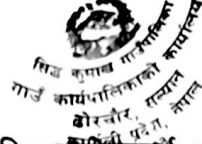 सिद्ध कुमाख गाउँपालिका
गाउँ कार्यपालिकाको कार्यालय
ढोरचौर, सल्यान
कर्णाली प्रदेश, नेपाल